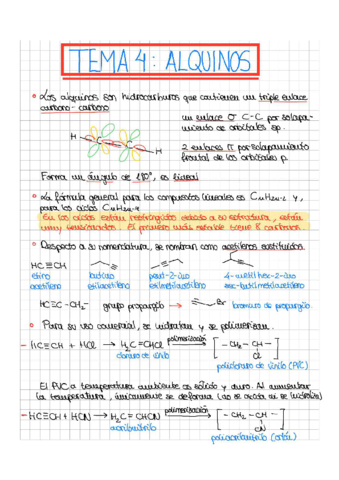 TEMA 4: ALQUINOS
• Los alquinos son hidrocarburos que contienen un triple enlace
carbono - carbono
un enlace σ C-C por solapa-
miento de orbitales sp.
H C C H
2 enlaces π por solapamiento
frontal de los orbitales p.
Forma un ángulo de 180°, es lineal
• La fórmula general para los compuestos lineales es CnH2n-2 y,
para los ciclos CnH2n-4
En los ciclos están restringidos debido a su estructura, están
muy tensionados. El primero más estable tiene 8 carbonos.
• Respecto a su nomenclatura, se nombran como acetilenos sustituidos.
HC≡CH
etino butino pent-2-ino 4-metilhex-2-ino
acetileno etilacetileno etilmetilacetileno sec-butilmetilacetileno
HC≡C-CH2- grupo propargilo → Br bromuro de propargilo.
• Para su uso comercial, se hidratan y se polimerizan.
- HC≡CH + HCl → H2C=CHCl polimerización → [-CH2-CH-]
Cl
cloruro de vinilo policloruro de vinilo (PVC)
El PVC a temperatura ambiente es sólido y duro. Al aumentar
la temperatura, únicamente se deforma (no se oxida ni se hidroliza)
- HC≡CH + HCN → H2C=CHCN polimerización → [-CH2-CH-]
CN
acrilonitrilo poliacrilonitrilo (orlón)